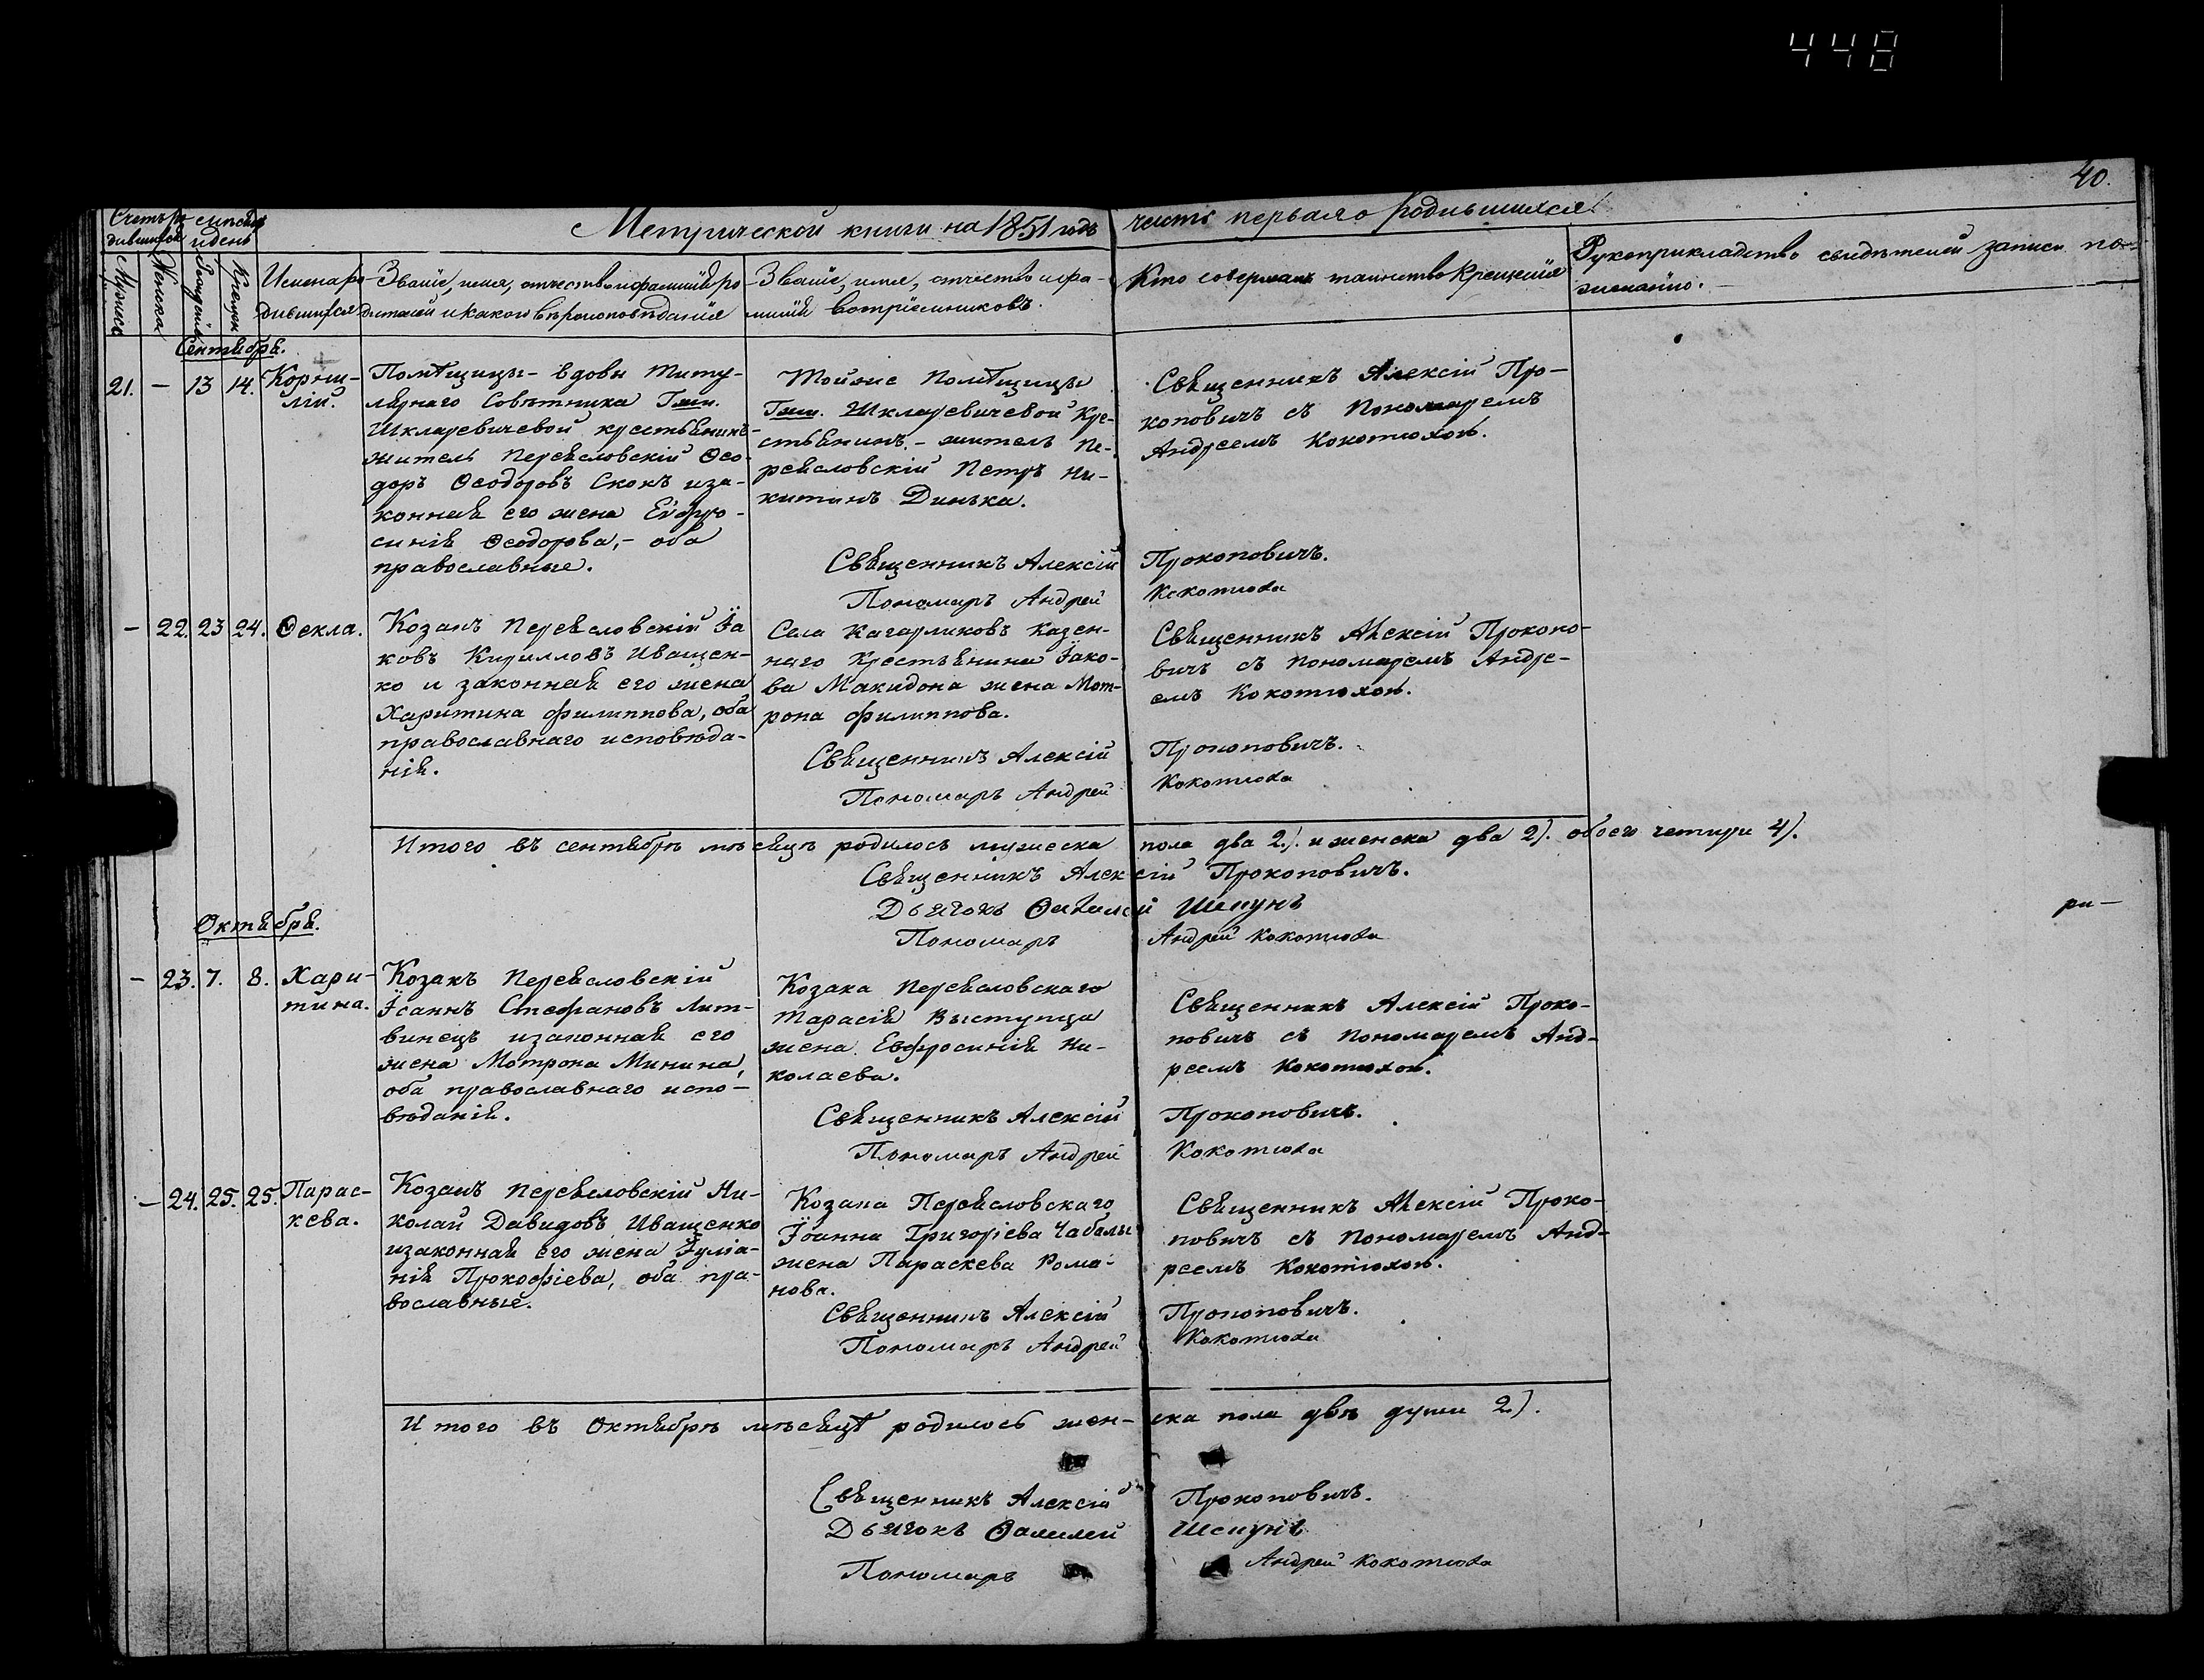 448
40.
Метрической книги на 1851 годъ часть первая о родившихся
Счетъ ро-
дившихся
Мѣсяцъ
и день
Мужеска
Женска
Рожденія
Крещен.
Имена ро-
дившихся
Званіе, имя, отчество и фамилія ро-
дителей и какого вѣроисповѣданія
Званіе, имя, отчество и фа-
милія воспріемниковъ.
Кто совершалъ таинство Крещенія
Рукоприкладство свидѣтелей записи по
желанію.
Сентября.
21. — 13 14. Корни-
лій.
Помѣщицы - вдовы Титу-
лярнаго Совѣтника
Шкляревичевой крестьянинъ-
житель Переясловскій Ѳео-
доръ Ѳеодоровъ Скокъ и за-
конная его жена Евфро-
синія Ѳеодорова, - оба
православные.
Тойже Помѣщицы
Шкляревичевой Кре-
стьянинъ - житель Пе-
реясловскій Петръ Ни-
китинъ Динька.
Священникъ Алексій Про-
коповичъ съ Пономаремъ
Андреемъ Кокотюхою.
Священникъ Алексій Прокоповичъ.
Пономарь Андрей Кокотюха
— 22. 23 24. Ѳекла.
Козакъ Переясловскій Іа
ковъ Кирилловъ Иващен-
ко и законная его жена
Харитина Филиппова, оба
православнаго исповѣда-
нія.
Села Кагарликовъ Казен-
наго Крестьянина Іако-
ва Македона жена Мот-
рона Филиппова.
Священникъ Алексій Прокопо-
вичъ съ Пономаремъ Андре-
емъ Кокотюхою.
Священникъ Алексій Прокоповичъ.
Пономарь Андрей Кокотюха
Итого въ сентябрѣ мѣсяцѣ родилось мужеска пола два 2). и женска два 2). обоего четыри 4).
Священникъ Алексій Прокоповичъ.
Дьячокъ Шепунъ
Пономарь Андрей Кокотюха
ри —
Октября.
— 23. 7. 8. Хари-
тина.
Козакъ Переясловскій
Іоаннъ Стефановъ Лит-
винецъ и законная его
жена Мотрона Минина,
оба православнаго испо-
вѣданія.
Козака Переясловскаго
Тарасія Выступца
жена Евфросинія Ни-
колаева.
Священникъ Алексій Проко-
повичъ съ Пономаремъ Анд-
реемъ Кокотюхою.
Священникъ Алексій Прокоповичъ.
Пономарь Андрей Кокотюха
— 24. 25. 25. Парас-
кева.
Козакъ Переясловскій Ни-
колай Давидовъ Иващенко
и законная его жена Іуліа-
нія Прокофіева, оба пра-
вославные.
Козака Переясловскаго
Іоанна Григоріева Чабалы
жена Параскева Рома-
нова.
Священникъ Алексій Проко-
повичъ съ Пономаремъ Анд-
реемъ Кокотюхою.
Священникъ Алексій Прокоповичъ.
Пономарь Андрей Кокотюха
Итого въ Октябрѣ мѣсяцѣ родилось жен-ска пола двѣ души 2).
Священникъ Алексій Прокоповичъ.
Дьячокъ Ѳалилей Шепунъ
Пономарь Андрей Кокотюха